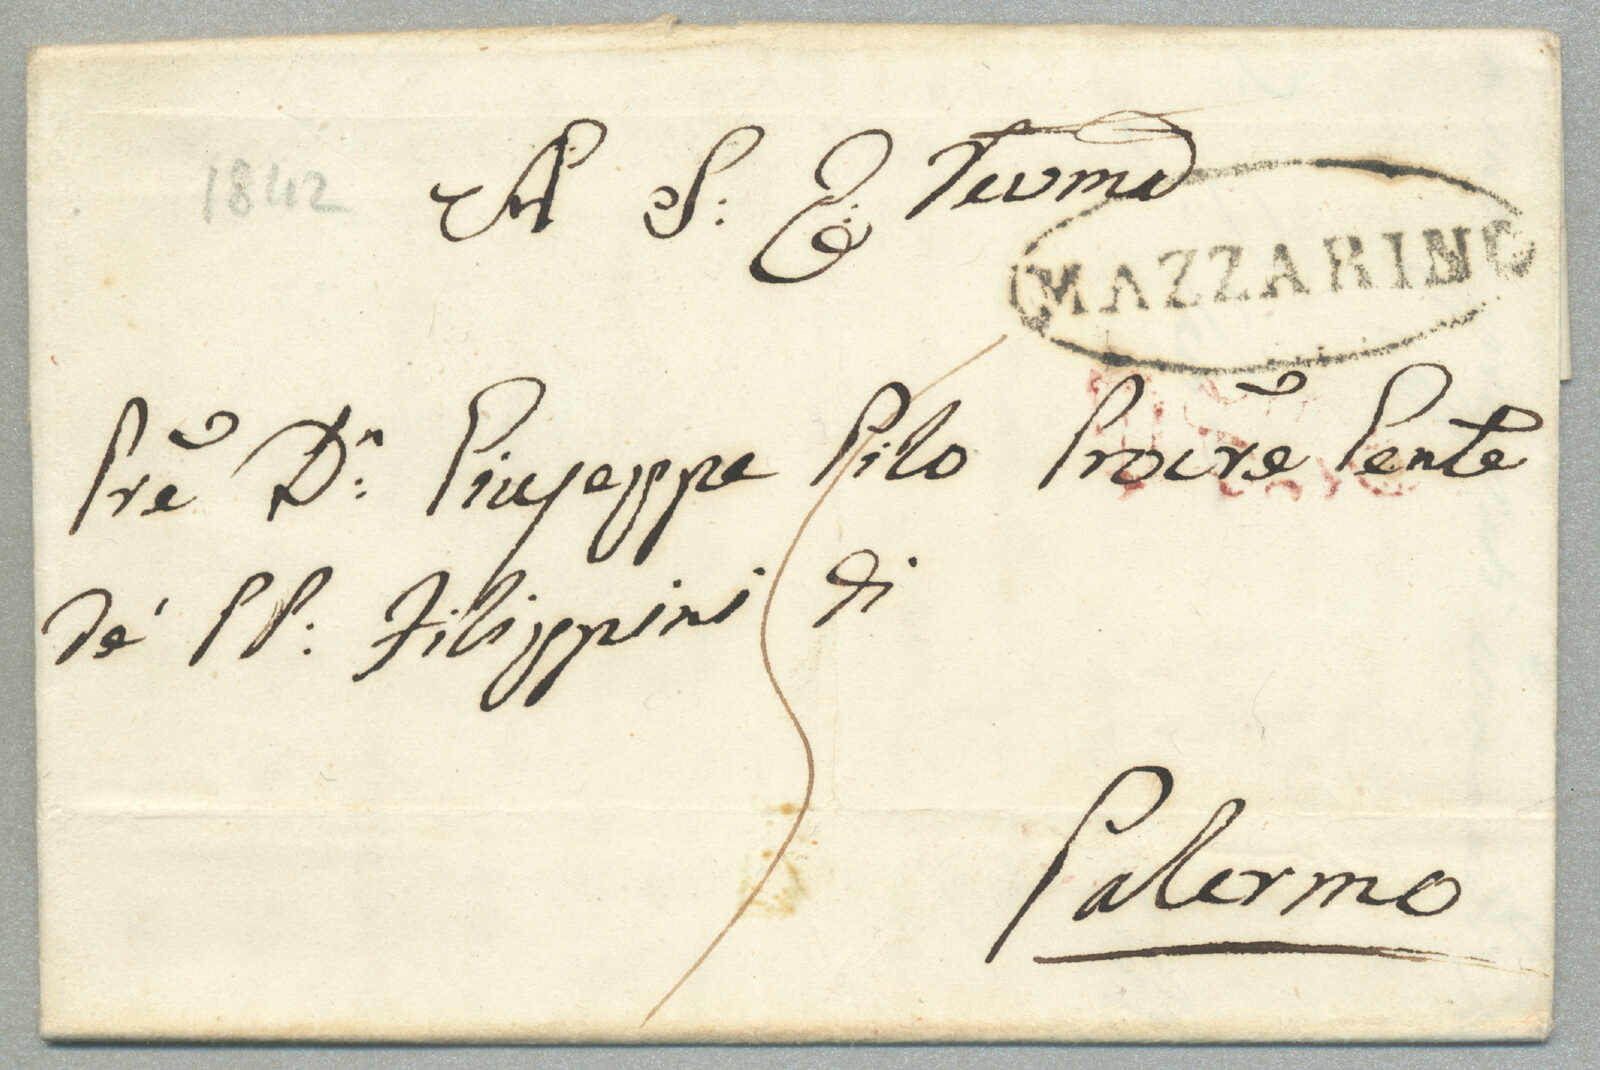 1842
A S: E: Revma
MAZZARINO
Pre Dn: Giuseppe Pilo Procre Gente
de' PP: Filippini di
Palermo